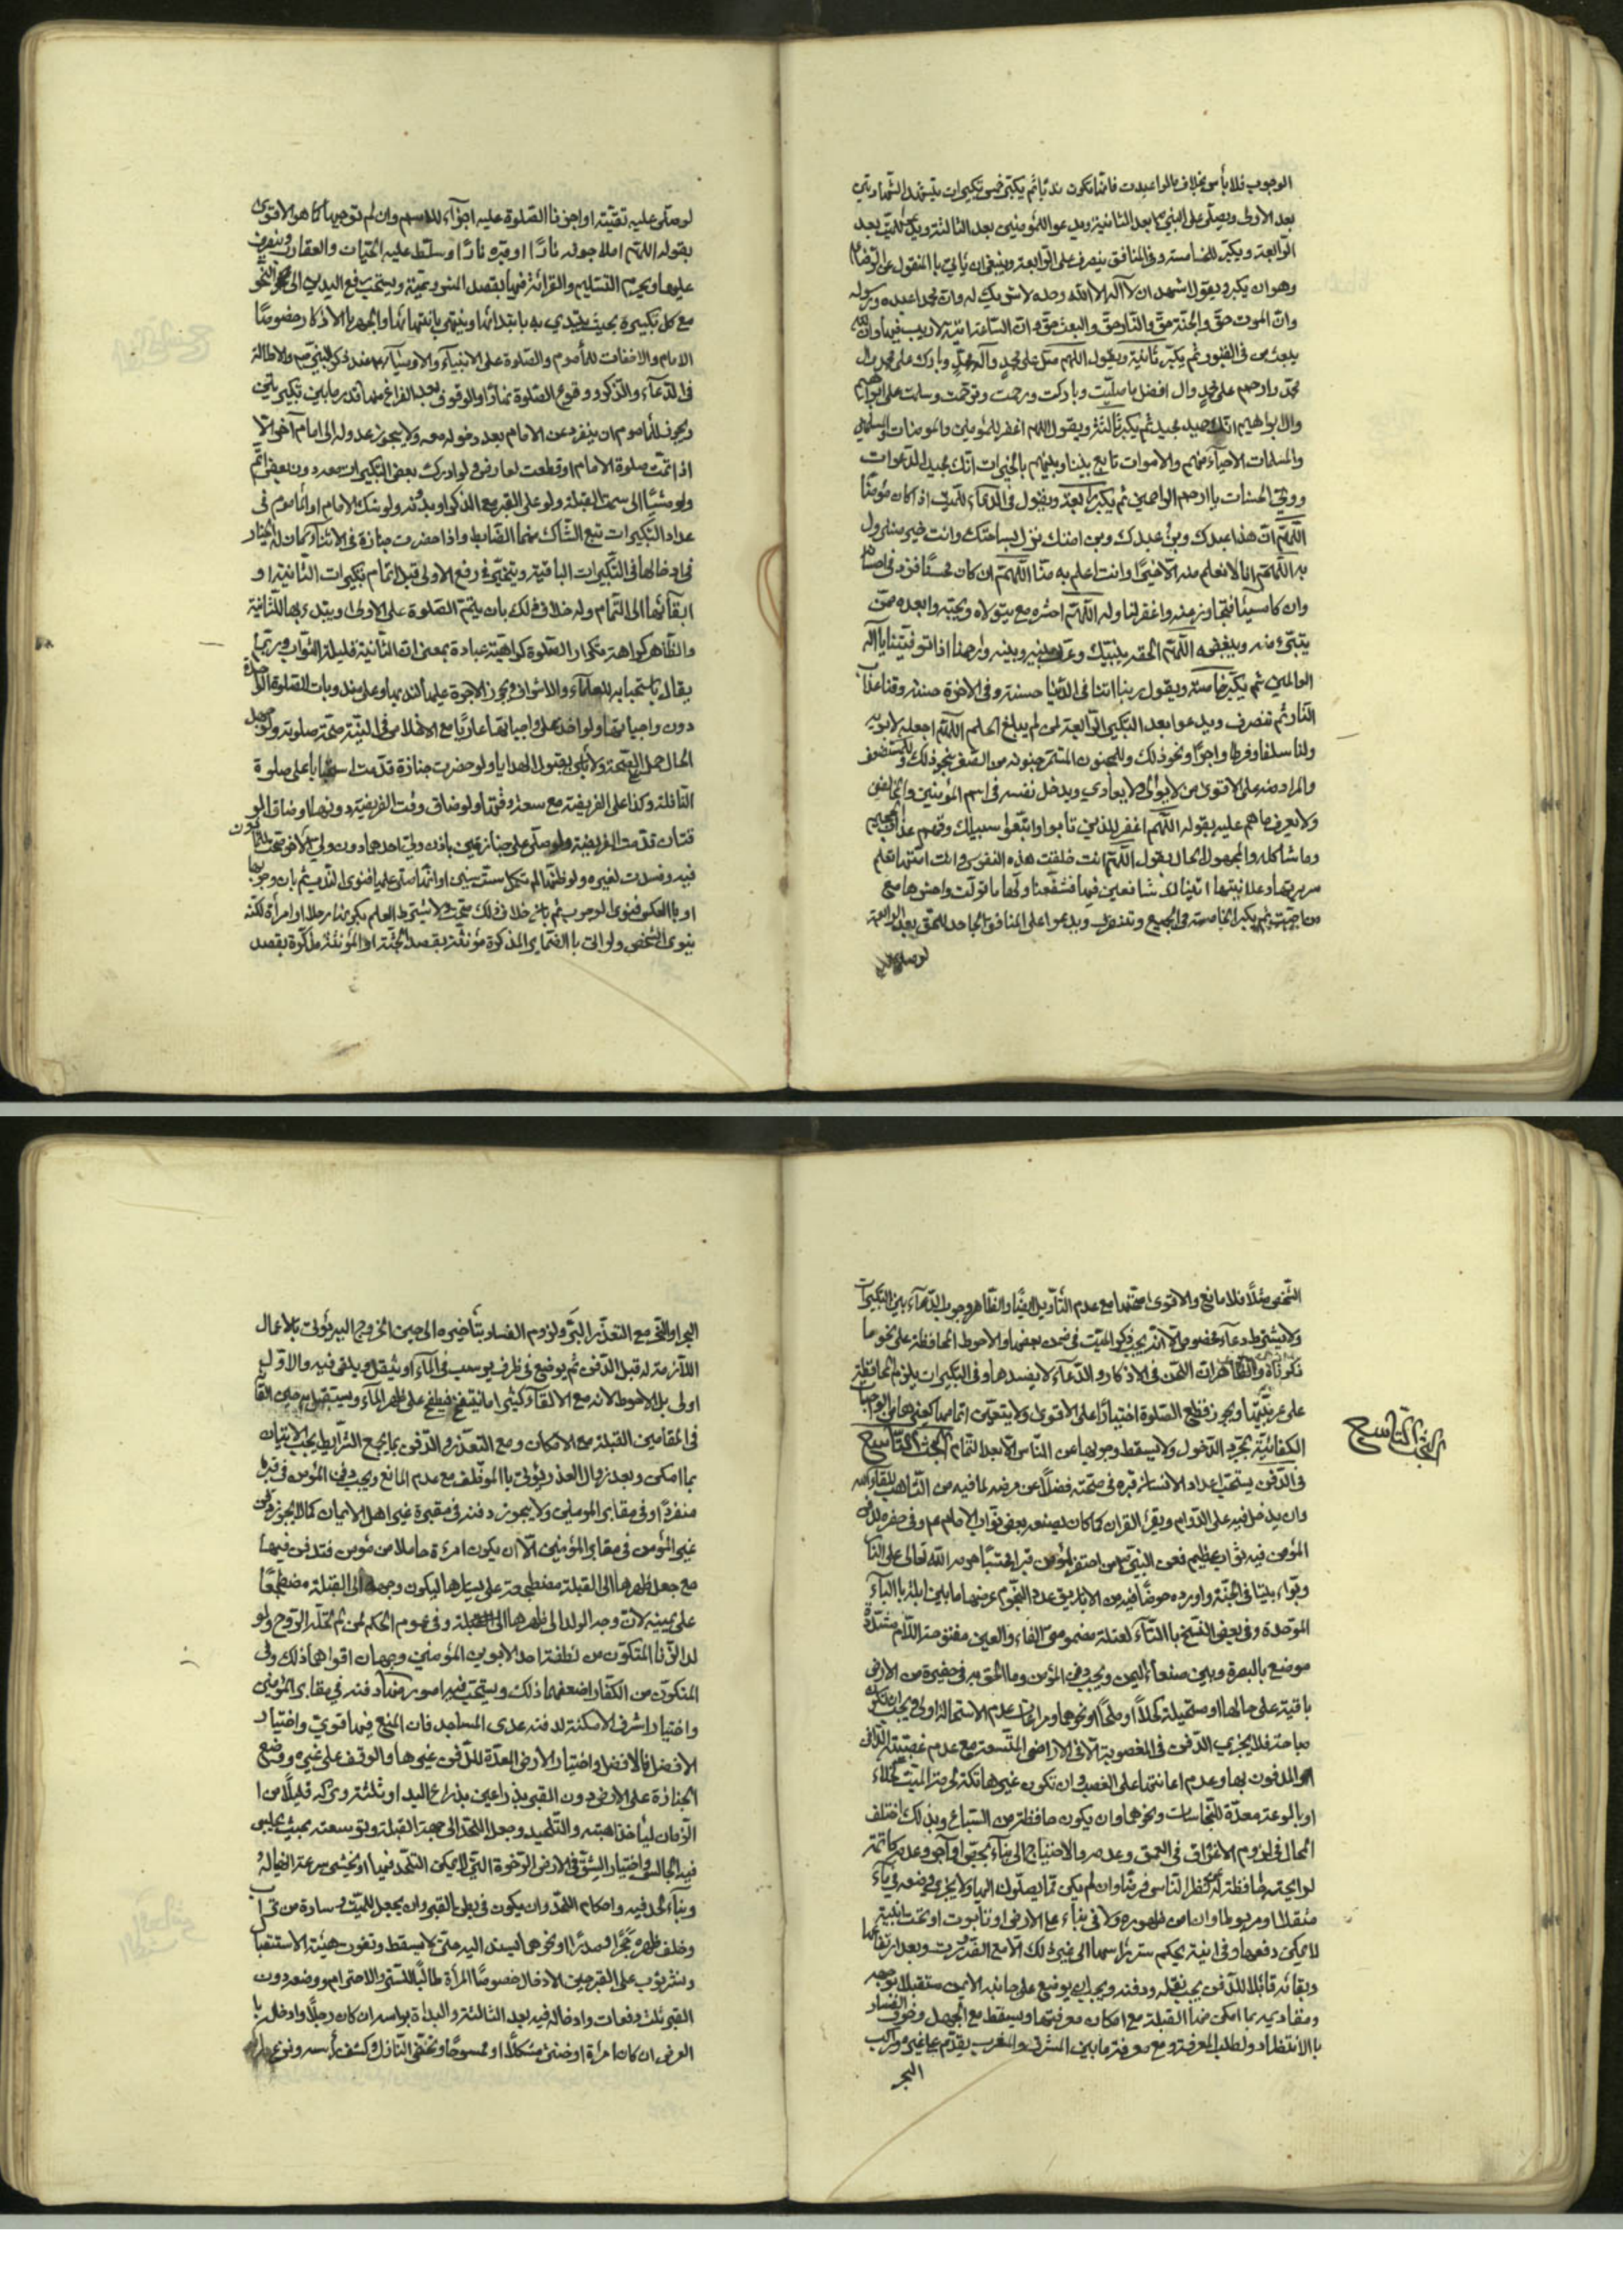 الوجوب فلا بأس بخلاف ما لو اعيدت فانها تكون ندبا ثم يكبر خمس تكبيرات يتشهد الشهادتين
بعد الاولى ويصلي على النبي بعد الثانية ويدعو للمؤمنين بعد الثالثة ويدعو للميت بعد
الرابعة ويكبر الخامسة وفي المنافق ينصرف على الرابعة وينبغي ان يأتي بالمنقول عن الرضا
وهو ان يكبر ويقول اشهد ان لا اله الا الله وحده لا شريك له وان محمدا عبده ورسوله
وان الموت حق والجنة حق والنار حق والبعث حق وان الساعة اتية لا ريب فيها وان الله
يبعث من في القبور ثم يكبر ثانية ويقول اللهم صل على محمد وآل محمد وبارك على محمد وال
محمد وارحم محمد وال افضل ما صليت وباركت ورحمت وترحمت وسلمت على ابراهيم
وال ابراهيم انك حميد مجيد ثم يكبر ثالثة ويقول اللهم اغفر للمؤمنين والمؤمنات والمسلمين
والمسلمات الاحياء منهم والاموات تابع بيننا وبينهم بالخيرات انك مجيب الدعوات
وولي الحسنات يا ارحم الراحمين ثم يكبر رابعة ويقول في الدعاء للميت اذا كان مؤمنا
اللهم ان هذا عبدك وبن عبدك وبن امتك نزل بساحتك وانت خير منزول
به اللهم انا لا نعلم منه الا خيرا وانت اعلم به منا اللهم ان كان محسنا فزد في احسانه
وان كان مسيئا فتجاوز عنه واغفر لنا وله اللهم احشره مع من يتولاه ويحبه وابعده ممن
يتبرء منه ويبغضه اللهم الحقه بنبيك وعرف بينه وبينه وارحمنا اذا توفيتنا يا اله
العالمين ثم يكبر خامسة ويقول ربنا اتنا في الدنيا حسنة وفي الاخرة حسنة وقنا عذاب
النار ثم تنصرف ويدعو بعد التكبير الرابعة لمن لم يبلغ الحلم اللهم اجعله لابويه
ولنا سلفا وفرطا واجرا ونحو ذلك وللمجنون المستمر جنونه من الصغر بنحو ذلك وللمستضعف
والمراد منه على الاقوى من لا يوالي ولا يعادي ويدخل نفسه في اسم المؤمنين والمخالفين
ولا يعرف ما هم عليه بقوله اللهم اغفر للذين تابوا واتبعوا سبيلك وقهم عذاب الجحيم
وما شاكله والمجهول الحال بقول اللهم انت خلقت هذه النفوس وانت امتها تعلم
سريرتها وعلانيتها اتيناك شافعين فيها فشفعنا ولها ما تولت واحشرها مع
من احبته ثم يكبر الخامسة في الجميع وتنصرف ويدعو على المنافق الجاحد للحق بعد الرابعة
لو صلى عليه
لو صلى عليه تقية او اجزنا الصلوة عليه اجراء للاسم وان لم نوجبها كما هو الاقوى
بقوله اللهم املا جوفه نارا وقبره نارا وسلط عليه الحيات والعقارب وينصرف
عليها ويحرم التسليم والقرائة فيها بقصد المشروعية ويستحب رفع اليدين الى النحر
مع كل تكبيرة بحيث يبتدي به بابتدائها وينتهي بانتهائها والجهر بالاذكار خصوصا
الامام والاخفات للمأموم والصلوة على الانبياء والاوصياء عند ذكر النبي والاطالة
في الدعاء والذكر ووقوع الصلوة نهارا والوقوف بعد الفراغ منها قدر ما بين تكبيرتين
ويجوز للمأموم ان ينفرد عن الامام بعد دخوله معه ولا يجوز عدوله الى امام آخر الا
اذا تمت صلوة الامام او قطعت لعارض ولو ادرك بعض التكبيرات معه دون بعض اتم
ولو مشيا الى سمت القبلة ولو على القبر مع الذكر او بدونه ولو شك الامام او المأموم في
عداد التكبيرات تبع الشاك منهما الضابط واذا حضرت جنازة في الاثناء كان له الخيار
في ادخالها في التكبيرات الباقية ويتخير في رفع الاولى قبل اتمام تكبيرات الثانية او
ابقائها الى التمام وله خلاف ذلك بان يتم الصلوة على الاولى ويبتدء بها للثانية
والظاهر كراهة تكرار الصلوة كراهية عبادة بمعنى ان الثانية قليلة الثواب وربما
يقال باستحبابه للعلماء والاشراف ويجوز الاجرة عليها لندبها وعلى مندوبات الصلوة الواجبة
دون واجباتها ولو اخذ على واجباتها عاريا مع الاخلاص في النية صحت صلوته ولو جهل
الحال حمل على الصحة ولا بأس بقبول الهدايا ولو حضرت جنازة قدمت استحبابا على صلوة
النافلة وكذا على الفريضة مع سعة وقتها ولو ضاق وقت الفريضة دونها او ضاق الو
قتان قدمت الفريضة ولو صلى على جنازتين باذن ولي احدهما دون ولي الاخر صحت للمأذون
فيه وفسدت لغيره ولو ظنها لم تكمل ست سنين او انها صلى عليها فنوى الندب ثم بان وجوبها
او بالعكس فنوى الوجوب ثم بان خلاف ذلك صحت ولا يشترط العلم بكونها رجلا او امرأة لكنه
ينوي الشخص ولو اتى بالضماير المذكرة مؤنثة بقصد الجثة او المؤنثة مذكرة بقصد
الشخص مثلا فلا مانع والاقوى صحتها مع عدم التأويل ايضا والظاهر وجوب الدعاء بين التكبيرات
ولا يشترط دعاء مخصوص الا انه يجب ذكر الميت في ضمن بعضها والاحوط المحافظة على نحو ما
ذكرناه والظاهر ان اللحن في الاذكار والدعاء لا يفسدها وفي التكبيرات يلزم المحافظة
على عربيتها ويجوز قطع الصلوة اختيارا على الاقوى ولا يتعين اتمامها كغيرها من الواجبات
الكفائية بمجرد الدخول ولا يسقط وجوبها عن الناس الا بعد التمام البحث التاسع
البحث التاسع
في الدفن يستحب اعداد الانسان قبره في صحته فضلا عن مرضه لما فيه من التأهب للقاء الله
وان يدخل فيه على الدوام ويقرء القران كما كان يصنعه بعض نواب الامام عم وفي حفره لدفن
المؤمن فيه ثواب عظيم فعن النبي من احتفر لمؤمن قبرا محتسبا حرمه الله تعالى على النار
وبوأه بيتا في الجنة واورده حوضا فيه من الاباريق عدد النجوم عرضها ما بين ابلة بالباء
الموحدة وفي بعض النسخ بالتاء كعتلة مضمومتي الفاء والعين مفتوحة اللام مشددة
موضع بالبصرة وبين صنعاء اليمن ويجب دفن المؤمن وما الحق به في حفيرة من الارض
باقية على حالها او مستحيلة كحلا او ملحا او نحوهما ومراعات عدم الاستحالة اولى ويجب ان تكون
مباحة فلا يجزي الدفن في المغصوبة الا في الاراضي المتسعة مع عدم غصبية الدافن
او المدفون بها وعدم اعانتها على الغصب وان تكون غير هاتكة لحرمة الميت كخلاء
او بالوعة معدة للنجاسات ونحوهما وان يكون حافظة من السباع وبذلك اختلف
الحال في لزوم الاغراق في العمق وعدمه والاحتياج الى بناء بجص او آجر وعدمه كاتمة
لرايحته حافظة له عن نظر الناس فرضا وان لم يكن مما يصلون اليها ولا يجزي وضعه في بناء
لا يمكن دفعها وفي ابنية يحكم سترها سما الى غير ذلك الا مع التعذر وبعد ارتفاعها
وبقائه قابلا للدفن يجب نقله ودفنه ويجب ان يوضع على جانبه الايمن مستقبلا بوجهه
ومقاديمه بما امكن منها القبلة مع امكان معرفتها ويسقط مع الجهل وخوف الفساد
بالانتظار ولطلب المعرفة ومع معرفة ما بين المشرق والمغرب يقدم على غيره وراكب
البحر
البحر او البئر مع التعذر البر ولزوم الفساد بتأخيره الى حين الخروج اليه يؤتى بالاعمال
اللازمة له قبل الدفن ثم يوضع في ظرف يرسب في الماء او يثقل ويلقى فيه والاول
اولى بل الاحوط لانه مع الالقاء كثيرا ما ينتفخ فيطفح على ظهر الماء ويستقبل به حين القاء
في المقامين القبلة مع الامكان ومع التعذر والدفن بما يجمع الشرايط يجب الاتيان
بما امكن وبعد زوال العذر يؤتى بالموظف مع عدم المانع ويجب دفن المؤمن في قبره
منفردا او في مقابر المومنين ولا يجوز دفنه في مقبرة غير اهل الايمان كما لا يجوز دفن
غير المؤمن في مقابر المؤمنين الا ان يكون امرءة حاملا من مؤمن فتدفن فيها
مع جعل ظهرها الى القبلة مضطجعة على يسارها ليكون وجهه الى القبلة مضطجعا
على يمينه لان وجه الولد الى ظهرها الى القبلة وفي عموم الحكم لمن لم تحله الروح ولو
لد الزنا المتكون من نطفة احد الابوين المؤمنين وجهان اقواهما ذلك وفي
المتكون من الكفار اضعفهما ذلك ويستحب فيه امور منها دفنه في مقابر المؤمنين
واختيار اشرف الامكنة لدفنه عدى المساجد فان المنع فيها قوي واختيار
الافضل فالافضل واختيار الارض المعدة للدفن غيرها والوقف على غيره ووضع
الجنازة على الارض دون القبر بذراعين بذراع اليد او ثلثة وتركه قليلا من ا
لزمان ليأخذ اهبته والتلحيد وجعل اللحد الى جهة القبلة وتوسعته بحيث يجلس
فيه الجالس واختيار الشق في الارض الرخوة التي لا يمكن اللحد فيها او يخشى سرعة انهياله
وبناء لحد فيه واحكام اللحد وان يكون في بطن القبر وان يجعل للميت وسادة من تراب
وخلف ظهره حجرا او مدرا او نحوهما ليسند اليه حتى لا يسقط وتفوت هيئة الاستقبال
ونشر ثوب على القبر حين الادخال خصوصا المرأة طالبا للستر والاحترام ووضعه دون
القبر ثلث دفعات وادخاله فيه بعد الثالثة والبداة براسه ان كان رجلا وادخاله با
لعرض ان كان امرأة او خنثى مشكلا او ممسوحا وتحفي النازل وكشف رأسه ونزع